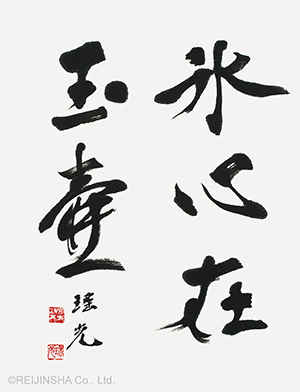 氷心在
玉壷
瑶光
©REIJINSHA Co., Ltd.